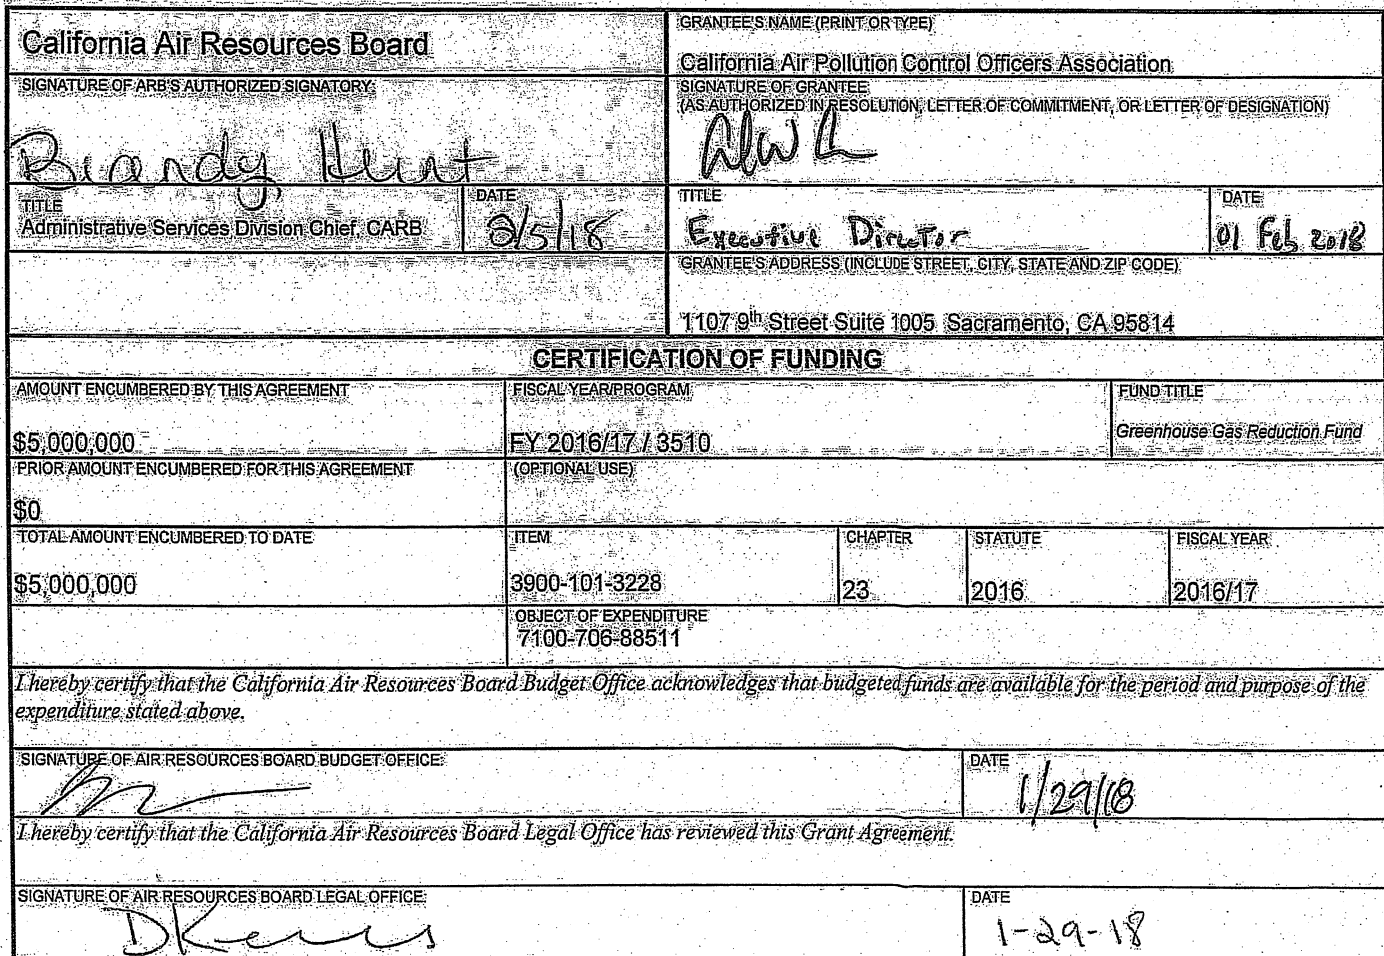 California Air Resources Board
GRANTEE'S NAME (PRINT OR TYPE)
California Air Pollution Control Officers Association
SIGNATURE OF ARB'S AUTHORIZED SIGNATORY:
Brandy Hunt
SIGNATURE OF GRANTEE
(AS AUTHORIZED IN RESOLUTION, LETTER OF COMMITMENT, OR LETTER OF DESIGNATION)
TITLE
Administrative Services Division Chief, CARB
DATE
2/5/18
TITLE
Executive Director
DATE
01 Feb 2018
GRANTEE'S ADDRESS (INCLUDE STREET, CITY, STATE AND ZIP CODE)
1107 9th Street Suite 1005 Sacramento, CA 95814
CERTIFICATION OF FUNDING
AMOUNT ENCUMBERED BY THIS AGREEMENT
$5,000,000
FISCAL YEAR/PROGRAM
FY 2016/17 / 3510
FUND TITLE
Greenhouse Gas Reduction Fund
PRIOR AMOUNT ENCUMBERED FOR THIS AGREEMENT
$0
(OPTIONAL USE)
TOTAL AMOUNT ENCUMBERED TO DATE
$5,000,000
ITEM
3900-101-3228
CHAPTER
23
STATUTE
2016
FISCAL YEAR
2016/17
OBJECT OF EXPENDITURE
7100-706-88511
I hereby certify that the California Air Resources Board Budget Office acknowledges that budgeted funds are available for the period and purpose of the
expenditure stated above.
SIGNATURE OF AIR RESOURCES BOARD BUDGET OFFICE:
DATE
1/29/18
I hereby certify that the California Air Resources Board Legal Office has reviewed this Grant Agreement.
SIGNATURE OF AIR RESOURCES BOARD LEGAL OFFICE:
DATE
1-29-18